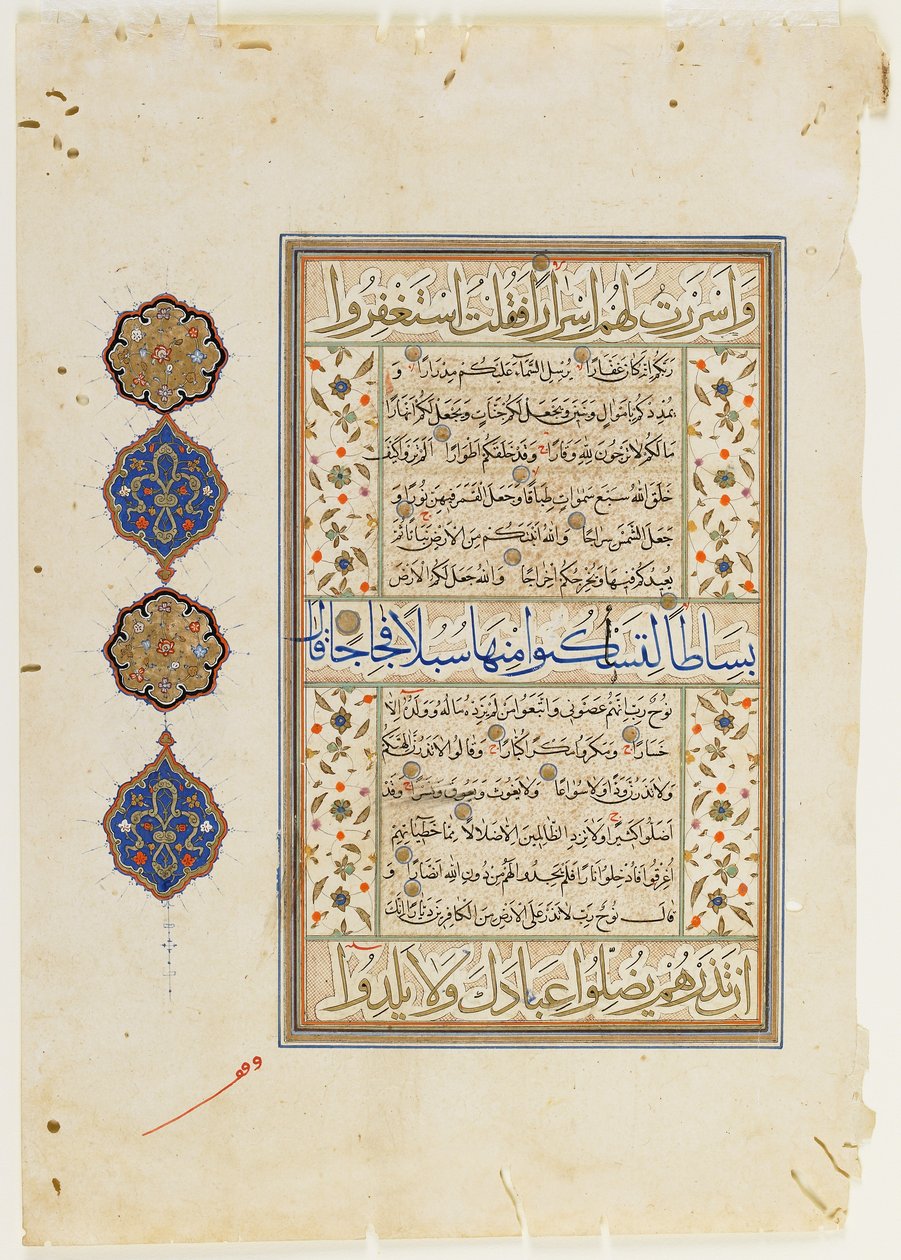 وَاَسْرَرْتُ لَهُمْ اِسْرَارًا فَقُلْتُ اسْتَغْفِرُوا
رَبَّكُمْ اِنَّهُ كَانَ غَفَّارًا يُرْسِلِ السَّمَآءَ عَلَيْكُمْ مِدْرَارًا وَ
يُمْدِدْكُمْ بِاَمْوَالٍ وَبَنِينَ وَيَجْعَلْ لَكُمْ جَنَّاتٍ وَيَجْعَلْ لَكُمْ اَنْهَارًا
مَا لَكُمْ لَا تَرْجُونَ لِلّٰهِ وَقَارًا وَقَدْ خَلَقَكُمْ اَطْوَارًا اَلَمْ تَرَوْا كَيْفَ
خَلَقَ اللّٰهُ سَبْعَ سَمٰوَاتٍ طِبَاقًا وَجَعَلَ الْقَمَرَ فِيهِنَّ نُورًا وَ
جَعَلَ الشَّمْسَ سِرَاجًا وَاللّٰهُ اَنْبَتَكُمْ مِنَ الْاَرْضِ نَبَاتًا ثُمَّ
يُعِيدُكُمْ فِيهَا وَيُخْرِجُكُمْ اِخْرَاجًا وَاللّٰهُ جَعَلَ لَكُمُ الْاَرْضَ
بِسَاطًا لِتَسْلُكُوا مِنْهَا سُبُلًا فِجَاجًا قَالَ
نُوحٌ رَبِّ اِنَّهُمْ عَصَوْنِي وَاتَّبَعُوا مَنْ لَمْ يَزِدْهُ مَالُهُ وَوَلَدُهُ اِلَّا
خَسَارًا وَمَكَرُوا مَكْرًا كُبَّارًا وَقَالُوا لَا تَذَرُنَّ اٰلِهَتَكُمْ
وَلَا تَذَرُنَّ وَدًّا وَلَا سُوَاعًا وَلَا يَغُوثَ وَيَعُوقَ وَنَسْرًا وَقَدْ
اَضَلُّوا كَثِيرًا وَلَا تَزِدِ الظَّالِمِينَ اِلَّا ضَلَالًا مِمَّا خَطِيٓـَٔاتِهِمْ
اُغْرِقُوا فَاُدْخِلُوا نَارًا فَلَمْ يَجِدُوا لَهُمْ مِنْ دُونِ اللّٰهِ اَنْصَارًا وَ
قَالَ نُوحٌ رَبِّ لَا تَذَرْ عَلَى الْاَرْضِ مِنَ الْكَافِرِينَ دَيَّارًا اِنَّكَ
اِنْ تَذَرْهُمْ يُضِلُّوا عِبَادَكَ وَلَا يَلِدُوا
وقف